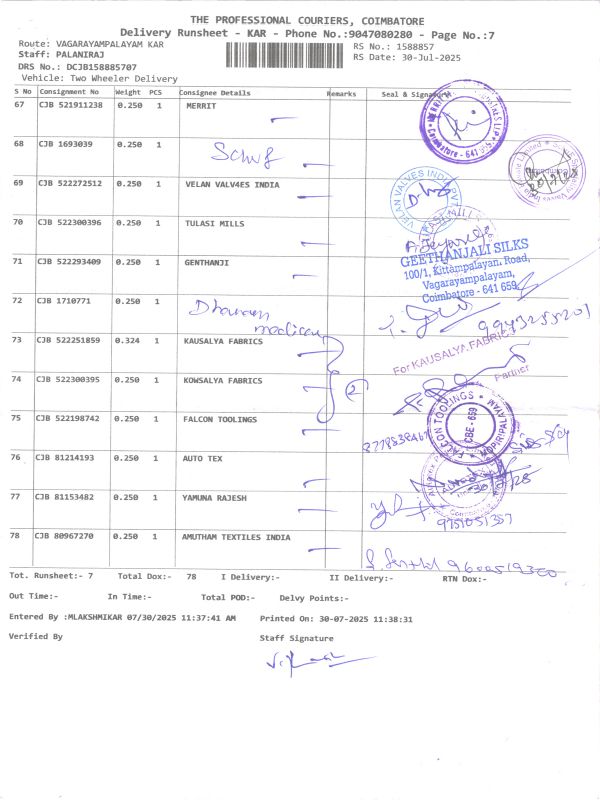 THE PROFESSIONAL COURIERS, COIMBATORE
Delivery Runsheet - KAR - Phone No.:9047080280 - Page No.:7
Route: VAGARAYAMPALAYAM KAR
RS No.: 1588857
Staff: PALANIRAJ
RS Date: 30-Jul-2025
DRS No.: DCJB158885707
Vehicle: Two Wheeler Delivery
S No Consignment No Weight PCS Consignee Details Remarks Seal & Signature
67 CJB 521911238 0.250 1 MERRIT
Coimbatore - 641
68 CJB 1693039 0.250 1
69 CJB 522272512 0.250 1 VELAN VALV4ES INDIA
VELAN VALVES INDIA PVT
70 CJB 522300396 0.250 1 TULASI MILLS
71 CJB 522293409 0.250 1 GENTHANJI
GEETHANJALI SILKS
100/1, Kittampalayan, Road,
Vagarayampalayam,
Coimbatore - 641 659
72 CJB 1710771 0.250 1 Dhanam medical
9943255201
73 CJB 522251859 0.324 1 KAUSALYA FABRICS
For KAUSALYA FABRICS
Partner
74 CJB 522300395 0.250 1 KOWSALYA FABRICS
2
75 CJB 522198742 0.250 1 FALCON TOOLINGS
FALCON TOOLINGS
CBE - 659
MOPIRIPALAYAM
76 CJB 81214193 0.250 1 AUTO TEX
77 CJB 81153482 0.250 1 YAMUNA RAJESH
9751051357
78 CJB 80967270 0.250 1 AMUTHAM TEXTILES INDIA
9600519300
Tot. Runsheet:- 7 Total Dox:- 78 I Delivery:- II Delivery:- RTN Dox:-
Out Time:- In Time:- Total POD:- Delvy Points:-
Entered By :MLAKSHMIKAR 07/30/2025 11:37:41 AM Printed On: 30-07-2025 11:38:31
Verified By Staff Signature